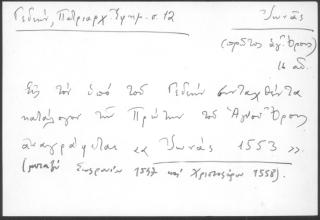 Γεδεών, Πατριαρχ. Ἐφημ. σ. 12
Ἰωνᾶς
(πρῶτος ἁγ. Ὄρους)
16 αἰ.
Εἰς τόν ὑπό τοῦ Γεδεών συνταχθέντα
κατάλογον τῶν Πρώτων τοῦ Ἁγίου Ὄρους
ἀναγράφεται «Ἰωνᾶς 1553».
(μεταξύ 1547 καί Χριστοφόρου 1558).